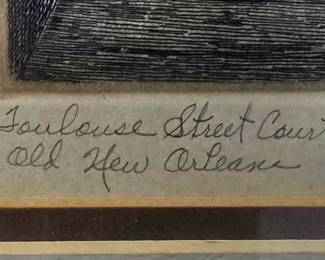 Toulouse Street Court
Old New Orleans